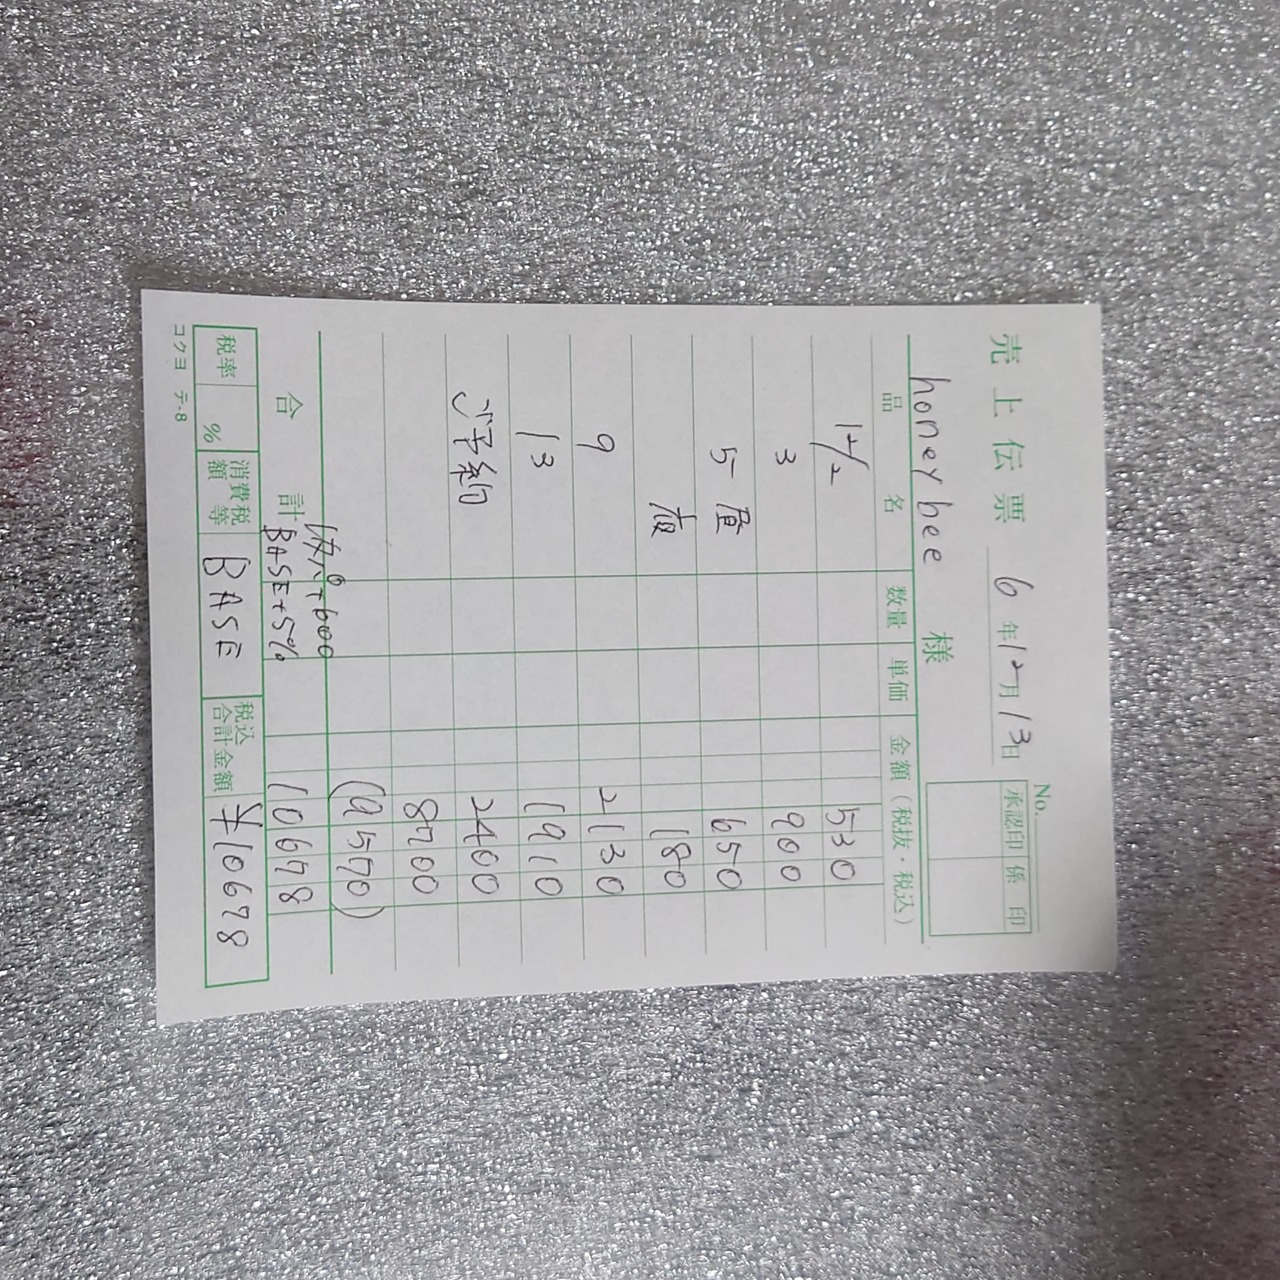 売上伝票 6年12月13日
No.
承認印 係印
honey bee 様
品名 数量 単価 金額(税抜・税込)
12/2 530
3 900
5 昼 650
夜 180
9 2130
13 1910
ご予約 2400
8700
+600 (9570)
合計 BASE+5% 10678
税率 % 消費税額等 BASE 税込合計金額 ¥10678
コクヨ テ-8